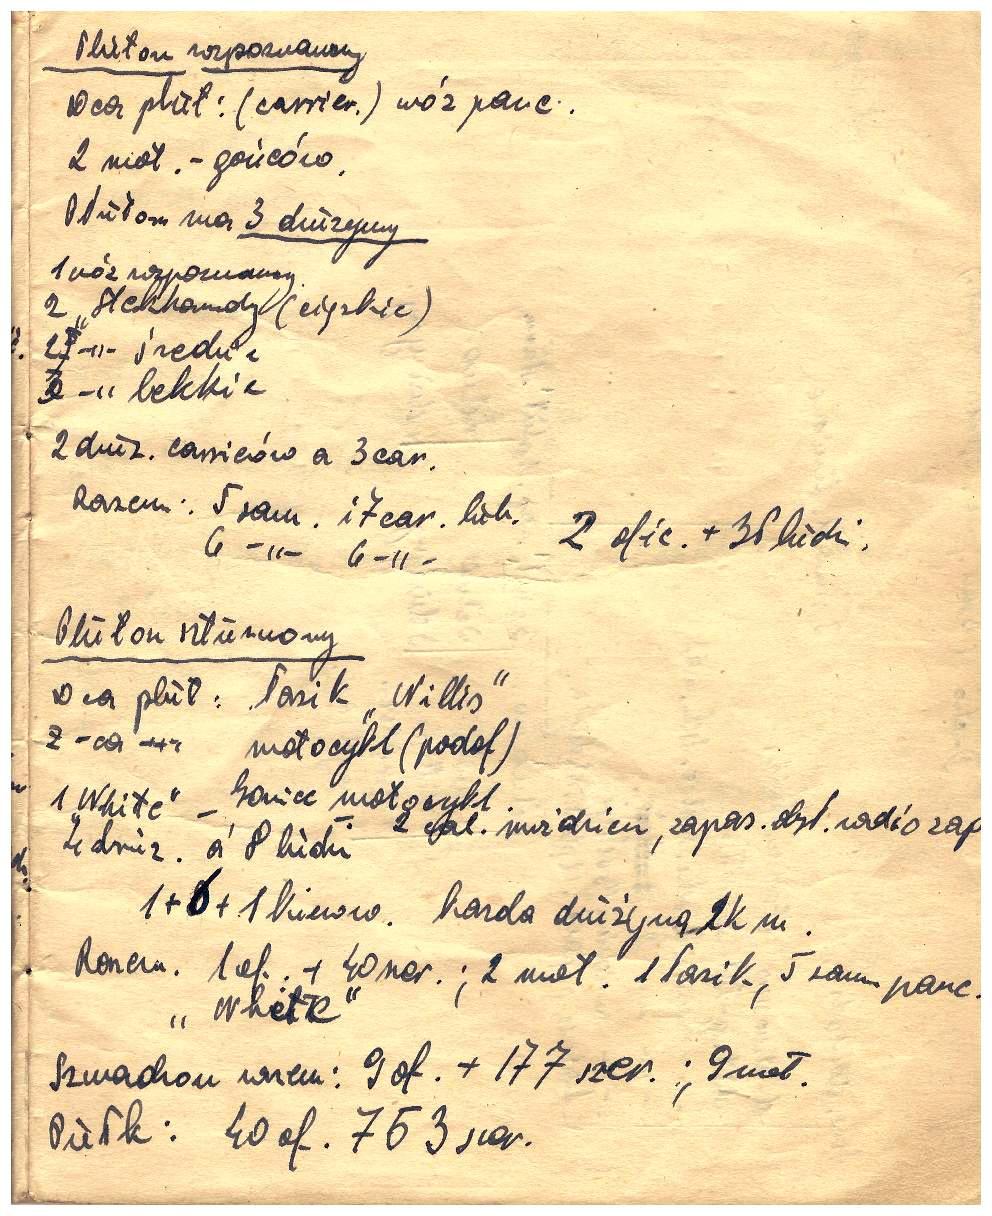 Pluton rozpoznawczy
Dca plut: (carrier.) wóz panc.
2 mot. - gońców.
Pluton ma 3 drużyny
1 wóz rozpoznawczy
2 „Steckhandy (ciężkie)
2 -„- średnie
3 -„ lekkie
2 druż. carrierów a 3 car.
Razem: 5 sam. i 7 car. lub.
6 -„- 6 -„-
2 ofic. + 35 ludzi.
Pluton szturmowy
Dca plut: łazik „Willis"
Z-ca -„- motocykl (podof)
1 „White" - goniec motocykl.
2 cal. moździerz, zapas. obsł. radio zap
4 druż. á 8 ludzi
1+6+1 kierow. każda drużyna 2 k m.
Razem. 1 of. + 40 szer. ; 2 mot. 1 łazik, 5 sam panc.
„White"
Szwadron razem: 9 of. + 177 szer. ; 9 mot.
Pułk: 40 of. 763 szer.